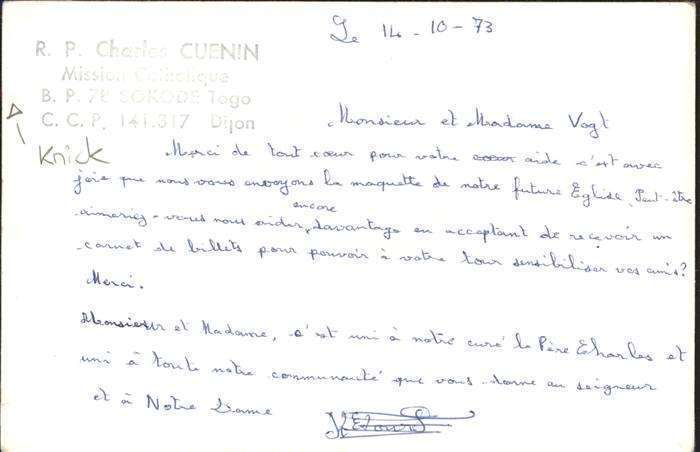 Le 14-10-73
R. P. Charles CUENIN
Mission Catholique
B. P. 78 SOKODE Togo
C. C. P. 141.317 Dijon
Knick
Monsieur et Madame Vogt
Merci de tout cœur pour votre aide c'est avec
joie que nous vous envoyons la maquette de notre future Eglise. Peut-être
encore
aimeriez-vous nous aider, davantage en acceptant de reçevoir un
carnet de billets pour pouvoir à votre tour sensibiliser vos amis?
Merci.
Monsieur et Madame, c'est uni à notre curé le Père Charles et
uni à toute notre communauté que vous donne au seigneur
et à Notre Dame